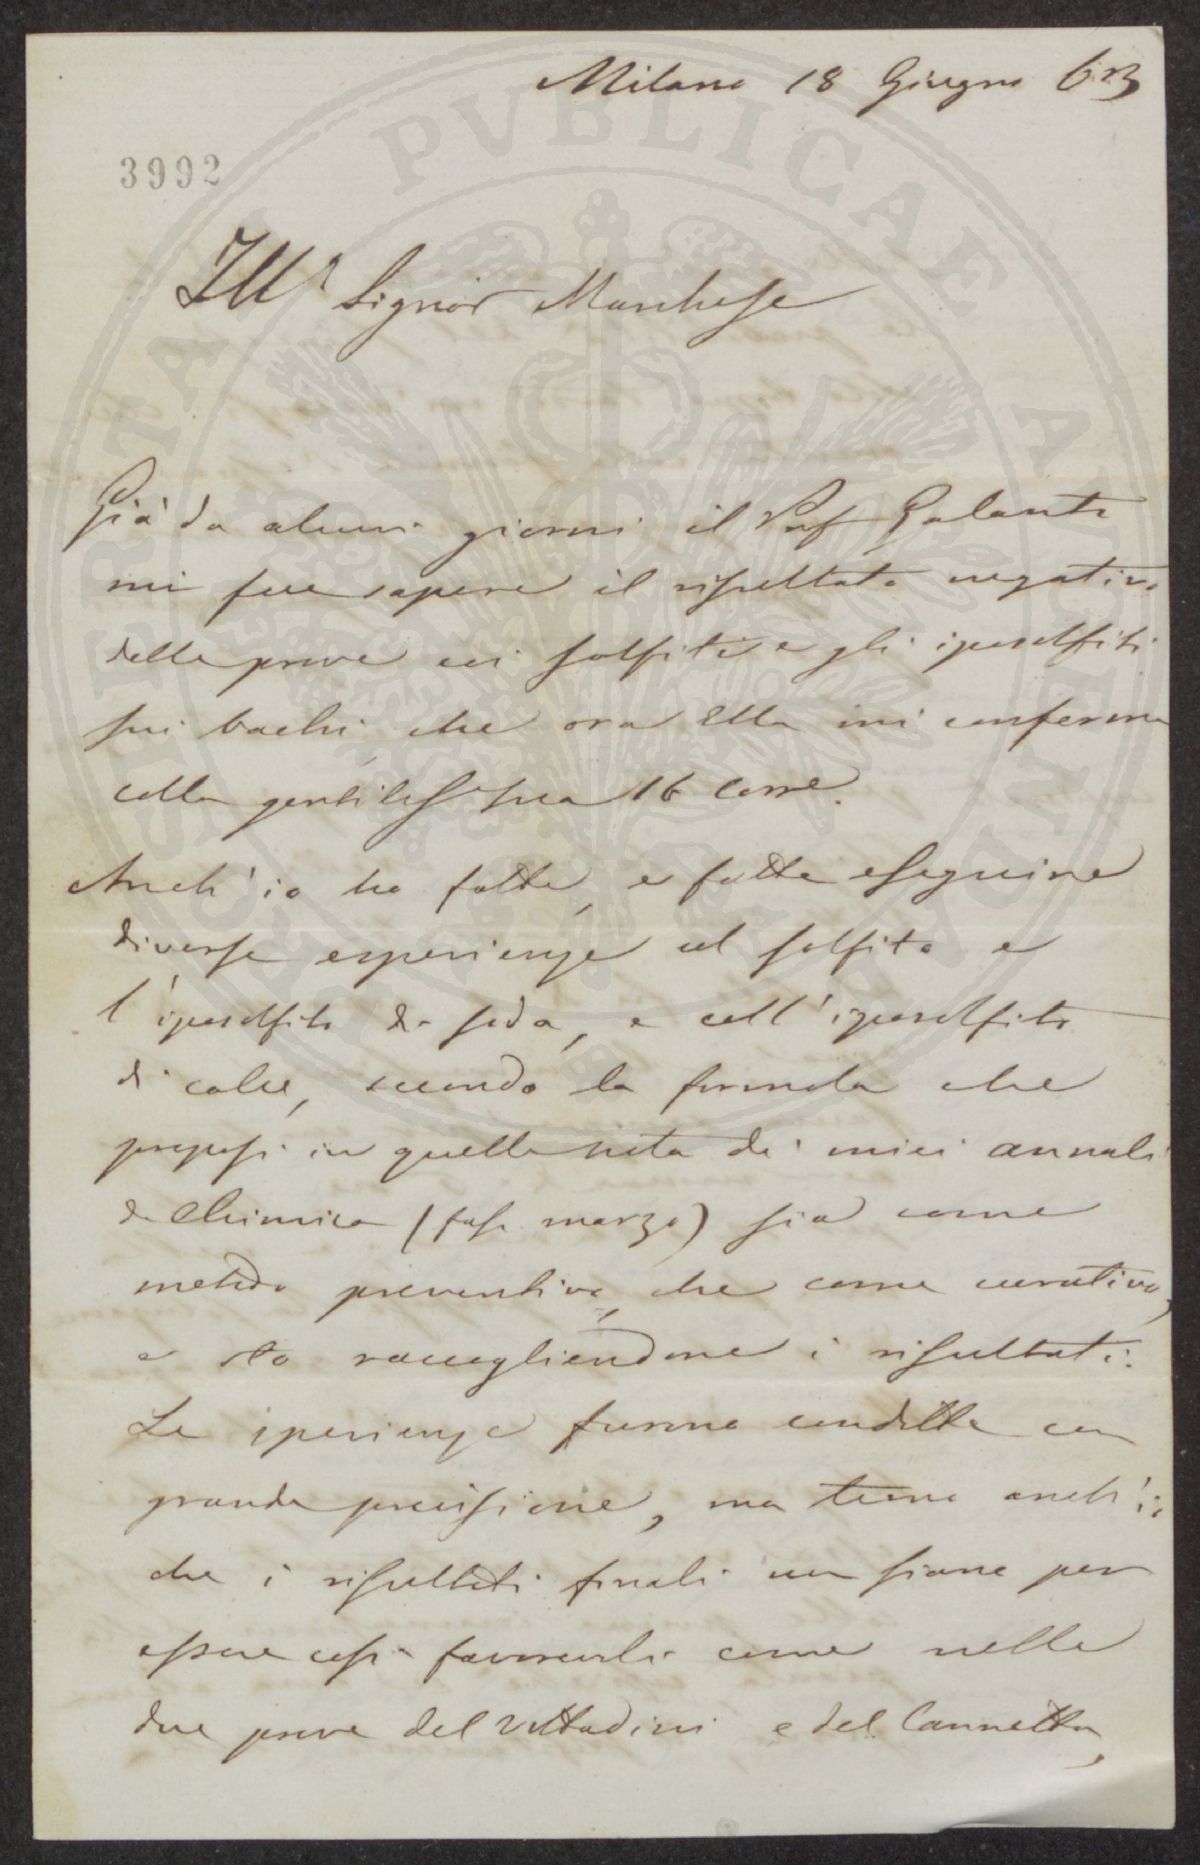 Milano 18 Giugno 63
3992
Ill.r Signor Marchese
Già da alcuni giorni il Prof Galanti
mi fece sapere il risultato negativo
delle prove coi solfiti e gli iposolfiti
sui bachi, che ora Ella mi conferma
colla gentiliss sua 16 corre.
Anch'io ho fatte, e fatte eseguire
diverse esperienze col solfito e
l'iposolfito di soda, e coll'iposolfito
di calce, secondo la formola che
proposi in quella nota de' miei annali
di Chimica (fasc. marzo) sia come
metodo preventivo, che come curativo,
e sto raccogliendone i risultati.
Le sperienze furono condotte con
grande precisione, ma temo anch'io
che i risultati finali non siano per
essere così favorevoli come nelle
due prove del Vittadini e del Cannetta,
PVBLICAE